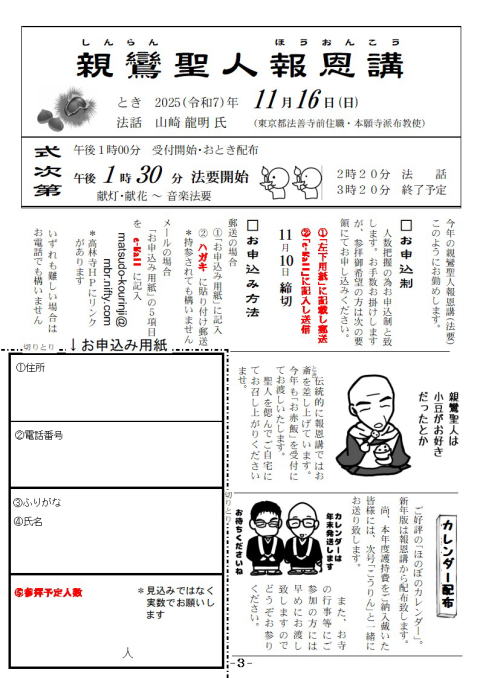 しんらん ほうおんこう
親鸞聖人報恩講
とき 2025(令和7)年 11月16日(日)
法話 山崎 龍明 氏 (東京都法善寺前住職・本願寺派布教使)
式次第
午後1時00分 受付開始・おとき配布
午後 1時 30 分 法要開始
献灯・献花 ~ 音楽法要
2時20分 法 話
3時20分 終了予定
今年の親鸞聖人報恩講(法要)
このようにお勤めします。
□お申込制
人数把握の為お申込制と致
します。お手数お掛けします
が、参拝御希望の方は次の要
領にてお申し込みください。
①「左下用紙」に記載し郵送
②「e-Mail」に記入し送信
11月10日 締切
□お申込み方法
郵送の場合
①「お申込み用紙」に記入
② ハガキ に貼り付け郵送
*持参されても構いません
メールの場合
「お申込み用紙」の5項目
を e-Mail に記入
matsuzo-kourinji@
mbr.nifty.com
*高林寺HPにリンク
があります
いずれも難しい場合は
お電話でも構いません
切りとり
↓お申込み用紙
①住所
②電話番号
③ふりがな
④氏名
⑤参拝予定人数
*見込みではなく
実数でお願いし
ます
人
切りとり
親鸞聖人は
小豆がお好き
だったとか
伝統的に報恩講ではお
とき
斎を差し上げています。
今年も「お赤飯」を受付に
てお渡しいたします。
聖人を偲んでご自宅に
てお召し上がりください
ませ。
カレンダー配布
ご好評の「ほのぼのカレンダー」。
新年版は報恩講から配布致します。
尚、本年度護持費をご納入戴いた
皆様には、次号「こうりん」と一緒に
お送り致します。
カレンダーは
年末発送します
お待ちくださいね
また、お寺
の行事等にご
参加の方には
早めにお渡し
致しますので
どうぞお参り
ください。
-3-